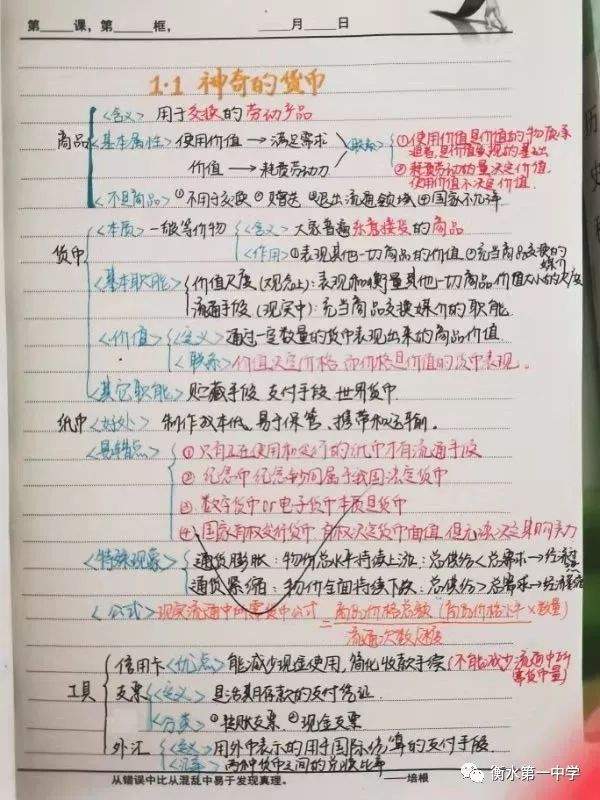 第____课，第____框，
____月____日
1.1 神奇的货币
商品
<含义> 用于交换的劳动产品
<基本属性> 使用价值→满足需求
价值→耗费劳动力
<联系>
①使用价值是价值的物质承
担者，是价值表现的基础
②耗费劳动的量决定价值，
使用价值不决定价值.
<不是商品> ①不用于交换 ②赠送 ③退出流通领域 ④国家不允许
货币
<本质> 一般等价物
<含义> 大家普遍乐意接受的商品
<作用> ①表现其他一切商品的价值 ②充当商品交换的
媒介
<基本职能> 价值尺度(观念上)：表现和衡量其他一切商品价值大小的尺度
流通手段(现实中)：充当商品交换媒介的职能
<价值> <含义> 通过一定数量的货币表现出来的商品价值
<联系> 价值决定价格 而价格是价值的货币表现。
<其它职能> 贮藏手段 支付手段 世界货币
纸币 <好处> 制作成本低、易于保管、携带和运输。
<易错点>
①只有正在使用和发行的纸币才有流通手段
②纪念币 纪念钞同属于我国法定货币
③数字货币or电子货币本质是货币
④国家有权发行货币 有权决定货币面值，但无法决定其购买力
<特殊现象> 通货膨胀：物价总水平持续上涨：总供给<总需求→经济过热
通货紧缩：物价全面持续下跌：总供给>总需求→经济萎缩
<公式> 现实流通中所需货币公式 = 商品价格总额(商品价格水平×数量)
流通次数/速度
工具
信用卡 <优点> 能减少现金使用，简化收款手续(不能减少流通中所
需货币量)
支票 <含义> 是活期存款的支付凭证
<分类> ①转账支票 ②现金支票
外汇 <含义> 用外币表示的用于国际结算的支付手段。
<汇率> 两种货币之间的兑换比率
从错误中比从混乱中易于发现真理。
——培根
衡水第一中学